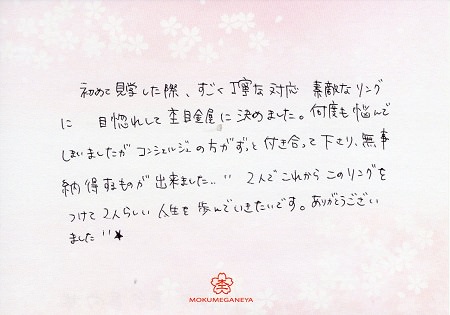 初めて見学した際、すごく丁寧な対応 素敵なリング
に 一目惚れして杢目金屋に決めました。何度も悩んで
しまいましたがコンシェルジュの方がずっと付き合って下さり、無事
納得するものが出来ました‥" 2人でこれからこのリングを
つけて2人らしい人生を歩んでいきたいです。ありがとうござい
ました"★
杢
MOKUMEGANEYA